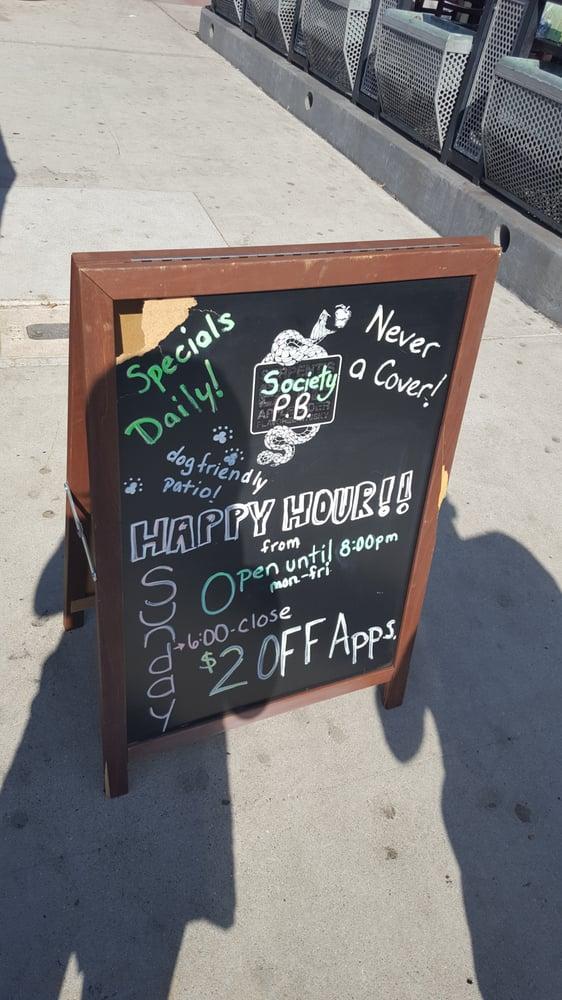 Specials
Daily!
Never
a Cover!
Society
P.B.
dog friendly
patio!
HAPPY HOUR!!
from
Open until 8:00pm
mon-fri
Sunday
→6:00-close
$2 OFF Apps.